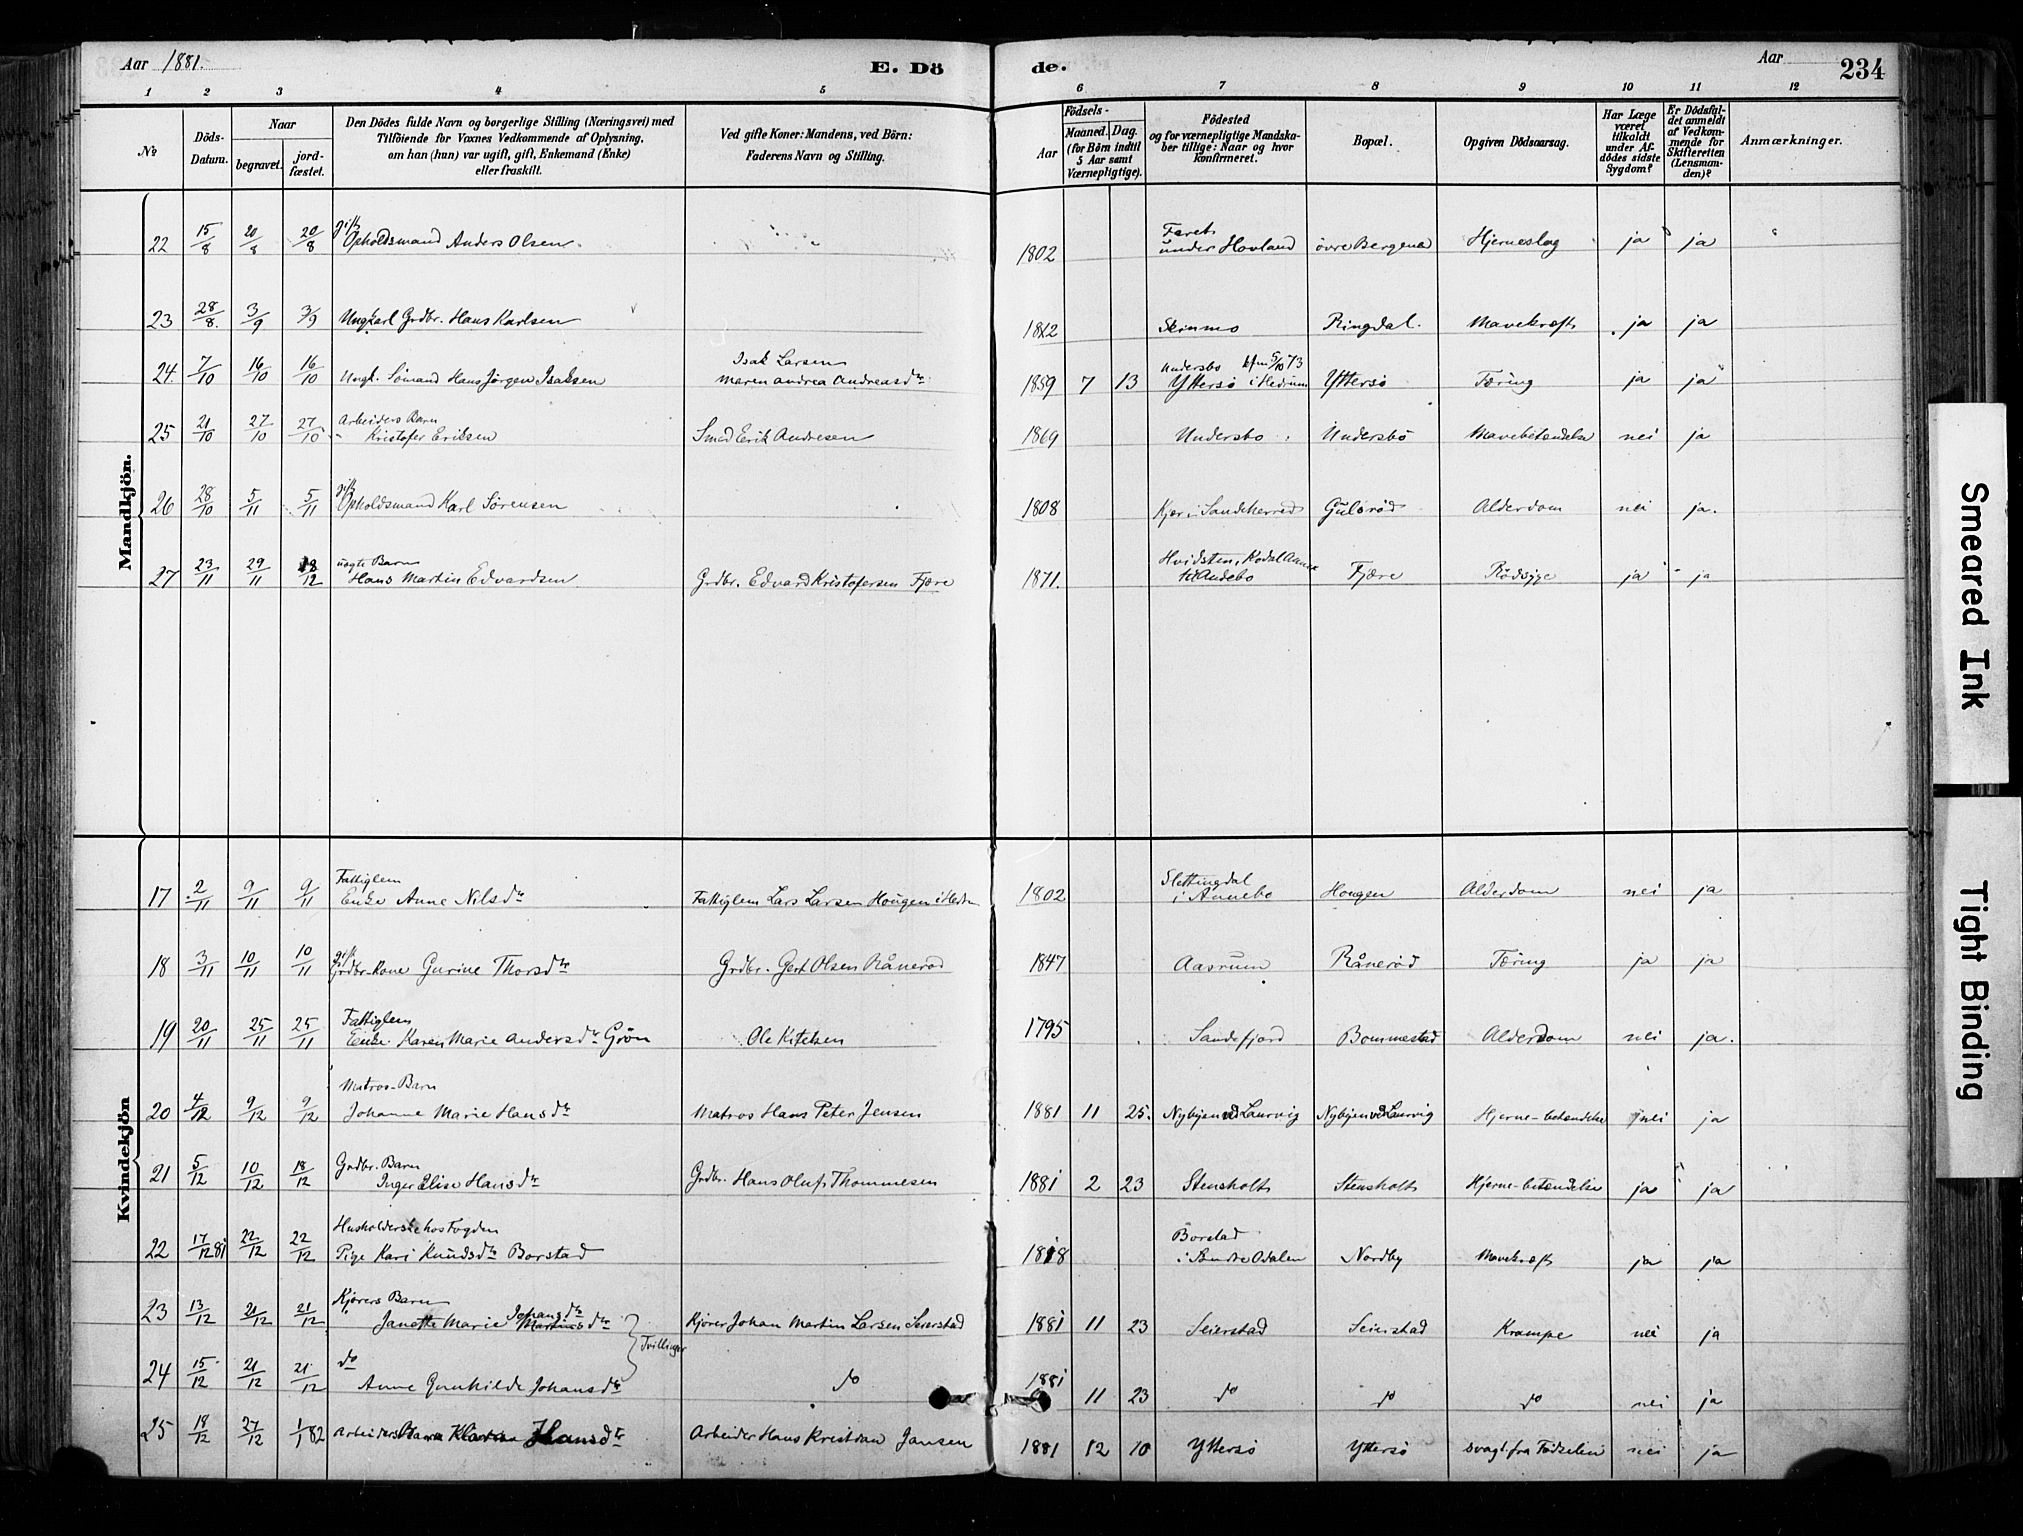 Aar 1881. E. Dö de. Aar 234
1 2 3 4 5 6 7 8 9 10 11 12
No
Döds-Datum.
Naar
begravet. jordfæstet.
Den Dödes fulde Navn og borgerlige Stilling (Næringsvei) med
Tilföiende for Voxnes Vedkommende af Oplysning,
om han (hun) var ugift, gift, Enkemand (Enke)
eller fraskilt.
Ved gifte Koner: Mandens, ved Börn:
Faderens Navn og Stilling.
Födsels-
Aar Maaned. Dag.
(for Börn indtil
5 Aar samt
Værnepligtige).
Födested
og for værnepligtige Mandska-
ber tillige: Naar og hvor
konfirmeret.
Bopæl.
Opgiven Dödsaarsag.
Har Læge
været
tilkaldt
under Af-
dödes sidste
Sygdom?
Er Dödsfal-
det anmeldt
af Vedkom-
mende for
Skifteretten
(Lensman-
den)?
Anmærkninger.
Mandkjön.
22 15/8 20/8 20/8 gift Opholdsmand Anders Olsen 1802 under Hovland övre Bergene Hjerneslag ja ja
23 28/8. 3/9 3/9 Ungkarl Grdbr. Hans Karlsen 1812 Skinmo Ringdal. Mavekræft ja ja
24. 7/10 16/10 16/10 Ungk. Sömand Hans Jörgen Isaksen Isak Larsen
Maren Andrea Andreasdtr 1859 7 13 Undersbo kfm 5/10 73
Yttersö i Hedrum Yttersö Tæring ja ja
25 21/10 27/10 27/10 Arbeiders Barn
Kristofer Eriksen Smed Erik Andresen 1869 Undersbo Undersbö Mavebetændelse nei ja
26 28/10 5/11 5/11 gift Opholdsmand Karl Sörensen 1808 Kjær i Sandeherred Gulsröd Alderdom nei ja.
27 23/11 29/11 18/12 uægte Barn
Hans Martin Edvardsen Grdbr. Edvard Kristofersen Fjære 1871. Hvidsten, Kodal Annex
til Andebo Fjære Rödsyge ja ja
Kvindekjön
17 2/11 9/11 9/11 Fattiglem
Enke Anne Nilsdtr Fattiglem Lars Larsen Hougen i Hedrm 1802 Slettingdal
i Annebo Hougen Alderdom nei ja
18 3/11 10/11 10/11 gift Grdbr-Kone Gurine Thorsdtr Grdbr. Gert Olsen Rånerød 1847 Aasrum Rånerød Tæring ja ja
19 20/11 25/11 25/11 Fattiglem
Enke Karen Marie Andersdtr Grön Ole Kittelsen 1795 Sandefjord Bommestad Alderdom nei ja.
20 4/12 9/12 9/12 Matros-Barn
Johanne Marie Hansdtr Matros Hans Peter Jensen 1881 11 25. Nybyen ved Laurvig Nybyen ved Laurvig Hjerne-betændelse nei ja
21 5/12 10/12 18/12 Grdbr. Barn
Inger Elise Hansdtr Grdbr. Hans Oluf Thommesen 1881 2 23 Stensholt Stensholt Hjerne-betændelse ja ja
22 17/12 81 22/12 22/12 Husholderske hos Fogden
Pige Kari Knudsdtr Borstad 1818 Borstad
i Söndre Odalen Nordby Mavekræft ja ja
23 13/12 21/12 21/12 Kjörers Barn
Janette Marie Johansdtr Martinsdtr Tvillinger Kjörer Johan Martin Larsen Seierstad 1881 11 23 Seierstad Seierstad Krampe nei ja
24 15/12 21/12 21/12 do
Anne Gunhilde Johansdtr do 1881 11 23 do do do nei ja
25 18/12 27/12 1/1 82 Arbeiders Barn Hansdtr Arbeider Hans Kristian Jansen 1881 12 10 Yttersö Yttersö svagt fra Födselen nei ja
Smeared Ink
Tight Binding